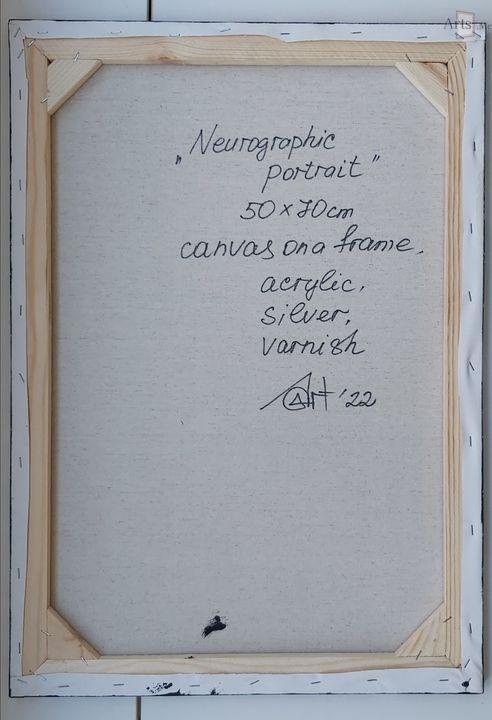 Arts
„Neurographic
portrait"
50×70cm
canvas on a frame,
acrylic,
silver,
varnish
Art '22